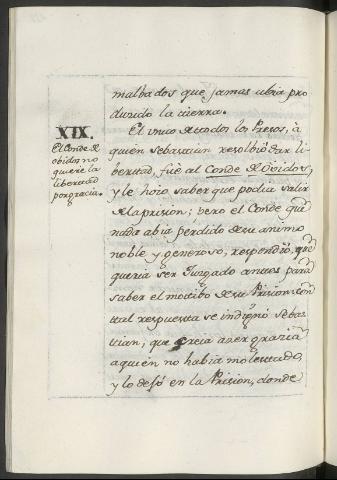 malbados que jamas abia pro
ducido la tierra.
XIX.
El Conde de
obidos no
quiere la
libertad
por gracia.
El unico de todos los Presos, à
quien Sebastian resolbiò dar li-
bertad, fuè al Conde de Ovidos,
y le hizo saber que podia salir
de la prision; pero el Conde que
nada abia perdido de su animo
noble y generoso, respondiò, que
queria ser Juzgado antes para
saber el motibo de su Prision: con
tal respuesta se indignò Sebas-
tian, que creia acer grazia
a quien no habia molestado,
y lo dejò en la Prision, donde